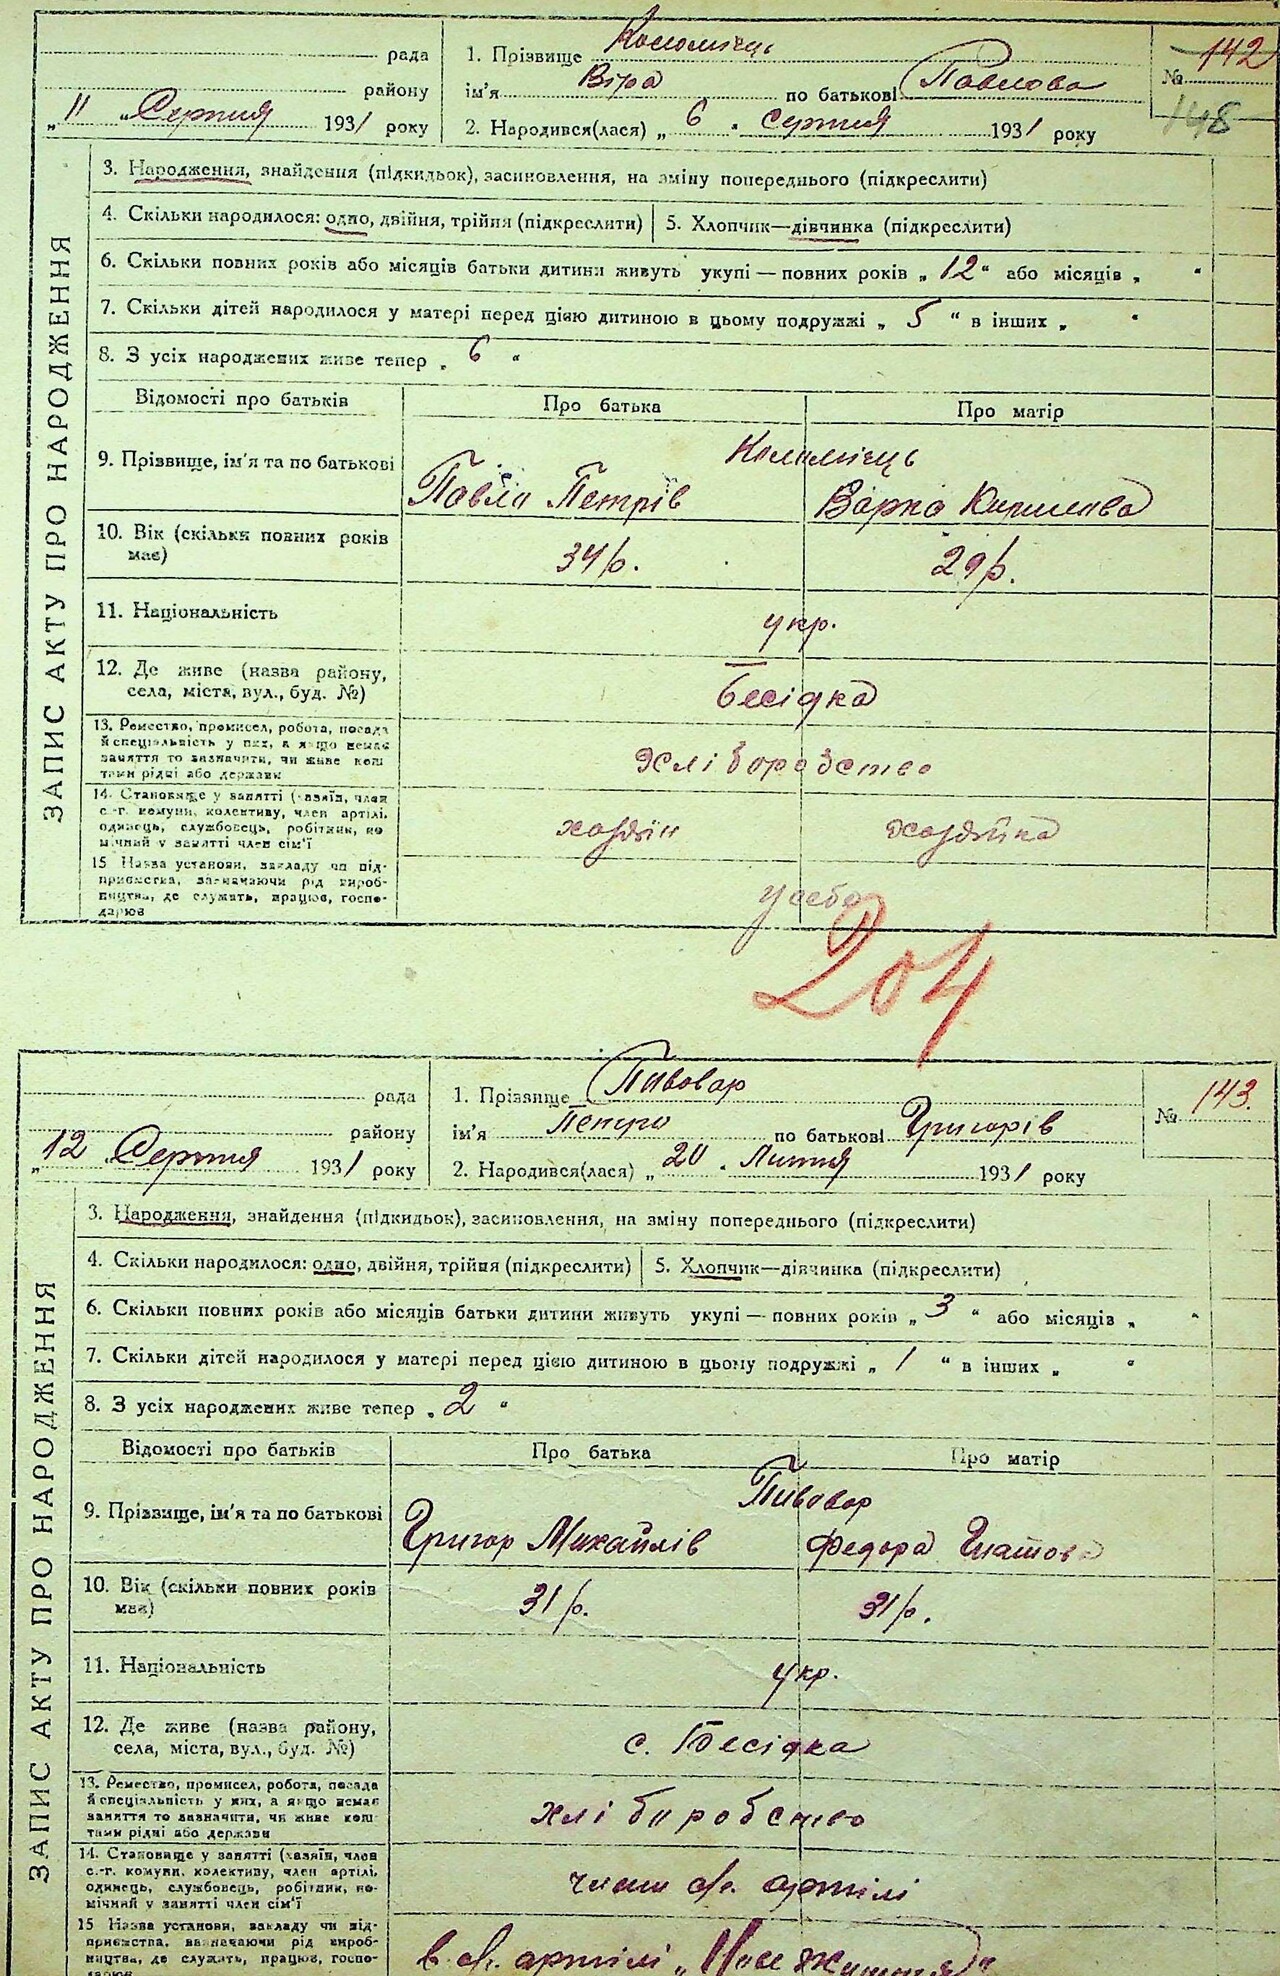 рада
району
„ 11 „ Серпня 1931 року
1. Прізвище Коломієць
ім'я Віра по батькові Павлова
2. Народився(лася) „ 6 „ серпня 1931 року
№ 142
148
ЗАПИС АКТУ ПРО НАРОДЖЕННЯ
3. Народження, знайдення (підкидьок), засиновлення, на зміну попереднього (підкреслити)
4. Скільки народилося: одно, двійня, трійня (підкреслити) 5. Хлопчик—дівчинка (підкреслити)
6. Скільки повних років або місяців батьки дитини живуть укупі — повних років „ 12 “ або місяців „ “
7. Скільки дітей народилося у матері перед цією дитиною в цьому подружжі „ 5 “ в інших „ “
8. З усіх народжених живе тепер „ 6 “
Відомості про батьків Про батька Про матір
Коломієць
9. Прізвище, ім'я та по батькові Павло Петрів Варка Кирилова
10. Вік (скільки повних років має) 34 р. 29 р.
11. Національність укр.
12. Де живе (назва району,
села, міста, вул., буд. №) Бесідка
13. Ремество, промисел, робота, посада
й спеціяльність у них, а якщо немає
заняття то зазначити, чи живе кош
тами рідні або держави
хліборобство
14. Становище у занятті (хазяїн, член
с.-г. комуни, колективу, член артілі,
одинець, службовець, робітник, по
мічний у занятті член сім'ї
хазяїн хазяйка
15. Назва установи, закладу чи під-
приємства, зазначаючи рід вироб-
ництва, де служить, працює, госпо-
дарює
у себе
204
рада
району
„ 12 „ Серпня 1931 року
1. Прізвище Пивовар
ім'я Петро по батькові Григорів
2. Народився(лася) „ 20 „ Липня 1931 року
№ 143.
ЗАПИС АКТУ ПРО НАРОДЖЕННЯ
3. Народження, знайдення (підкидьок), засиновлення, на зміну попереднього (підкреслити)
4. Скільки народилося: одно, двійня, трійня (підкреслити) 5. Хлопчик—дівчинка (підкреслити)
6. Скільки повних років або місяців батьки дитини живуть укупі — повних років „ 3 “ або місяців „ “
7. Скільки дітей народилося у матері перед цією дитиною в цьому подружжі „ 1 “ в інших „ “
8. З усіх народжених живе тепер „ 2 “
Відомості про батьків Про батька Про матір
Пивовар
9. Прізвище, ім'я та по батькові Григор Михайлів Федора Гнатова
10. Вік (скільки повних років має) 31 р. 31 р.
11. Національність укр.
12. Де живе (назва району,
села, міста, вул., буд. №) с. Бесідка
13. Ремество, промисел, робота, посада
й спеціяльність у них, а якщо немає
заняття то зазначити, чи живе кош
тами рідні або держави
хліборобство
14. Становище у занятті (хазяїн, член
с.-г. комуни, колективу, член артілі,
одинець, службовець, робітник, по-
мічний у занятті член сім'ї
члени с/г. артілі
15 Назва установи, закладу чи під-
приємства, зазначаючи рід вироб-
ництва, де служить, працює, госпо-
дарює
в с/г. артілі